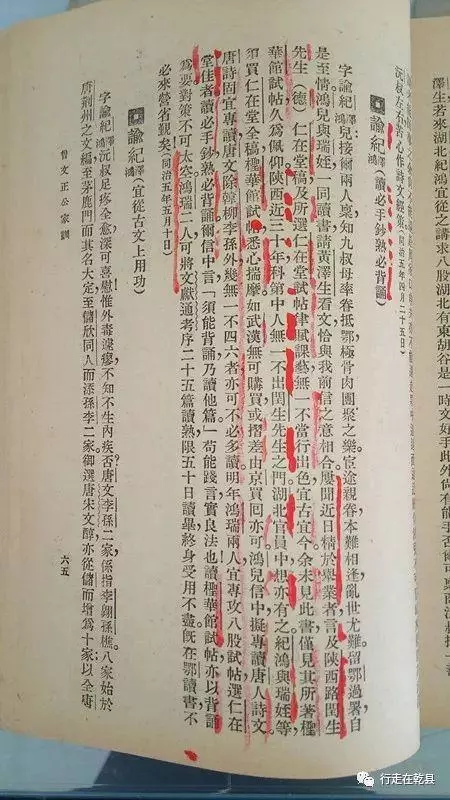 澤生若來湖北紀鴻宜從之講求八股湖北有東胡谷是一時文好手此外尚有能手否爾可稟商沅叔擇一善
沅叔左右苦心作詩文經策(同治五年四月二十五日)
諭紀澤鴻(讀必手鈔熟必背誦)
字諭紀澤鴻兒接爾兩人稟知九叔母率眷抵鄂極骨肉團聚之樂宦途親眷本難相逢亂世尤難留鄂過暑自
是至情鴻兒與瑞姪一同讀書請黃澤生看文恰與我前信之意相合屢聞近日精於舉業者言及陝西路閏生
先生(德)仁在堂稿及所選仁在堂試帖律賦課藝無一不當行出色宜古宜今余未見此書僅見其所著檉
華館試帖久為佩仰陝西近三十年科第中人無一不出閏生先生之門湖北官員中想亦有之紀鴻與瑞姪等
須買仁在堂全稿檉華館試帖悉心揣摩如武漢無可購買或摺差由京買回亦可鴻兒信中擬專讀唐人詩文
唐詩固宜專讀唐文除韓柳李孫外幾無一不四六者亦可不必多讀明年鴻瑞兩人宜專攻八股試帖選仁在
堂佳者讀必手鈔熟必背誦爾信中言「須能背誦乃讀他篇」苟能踐言實良法也讀檉華館試帖亦以背誦
為要對策不可太空鴻瑞二人可將文獻通考序二十五篇讀熟限五十日讀畢終身受用不盡既在鄂讀書不
必來營省覲矣(同治五年五月十日)
諭紀澤鴻宜從古文上用功
字諭紀澤鴻沅叔足疼全愈深可喜慰惟外毒遽瘳不知不生內疾否?唐文李孫二家係指李翱孫樵八家始於
唐荊州之文編至茅鹿門而其名大定至儲欣同人而添孫李二家御選唐宋文醇亦從儲而增為十家以全唐
曾文正公家訓
六五
行走在乾县